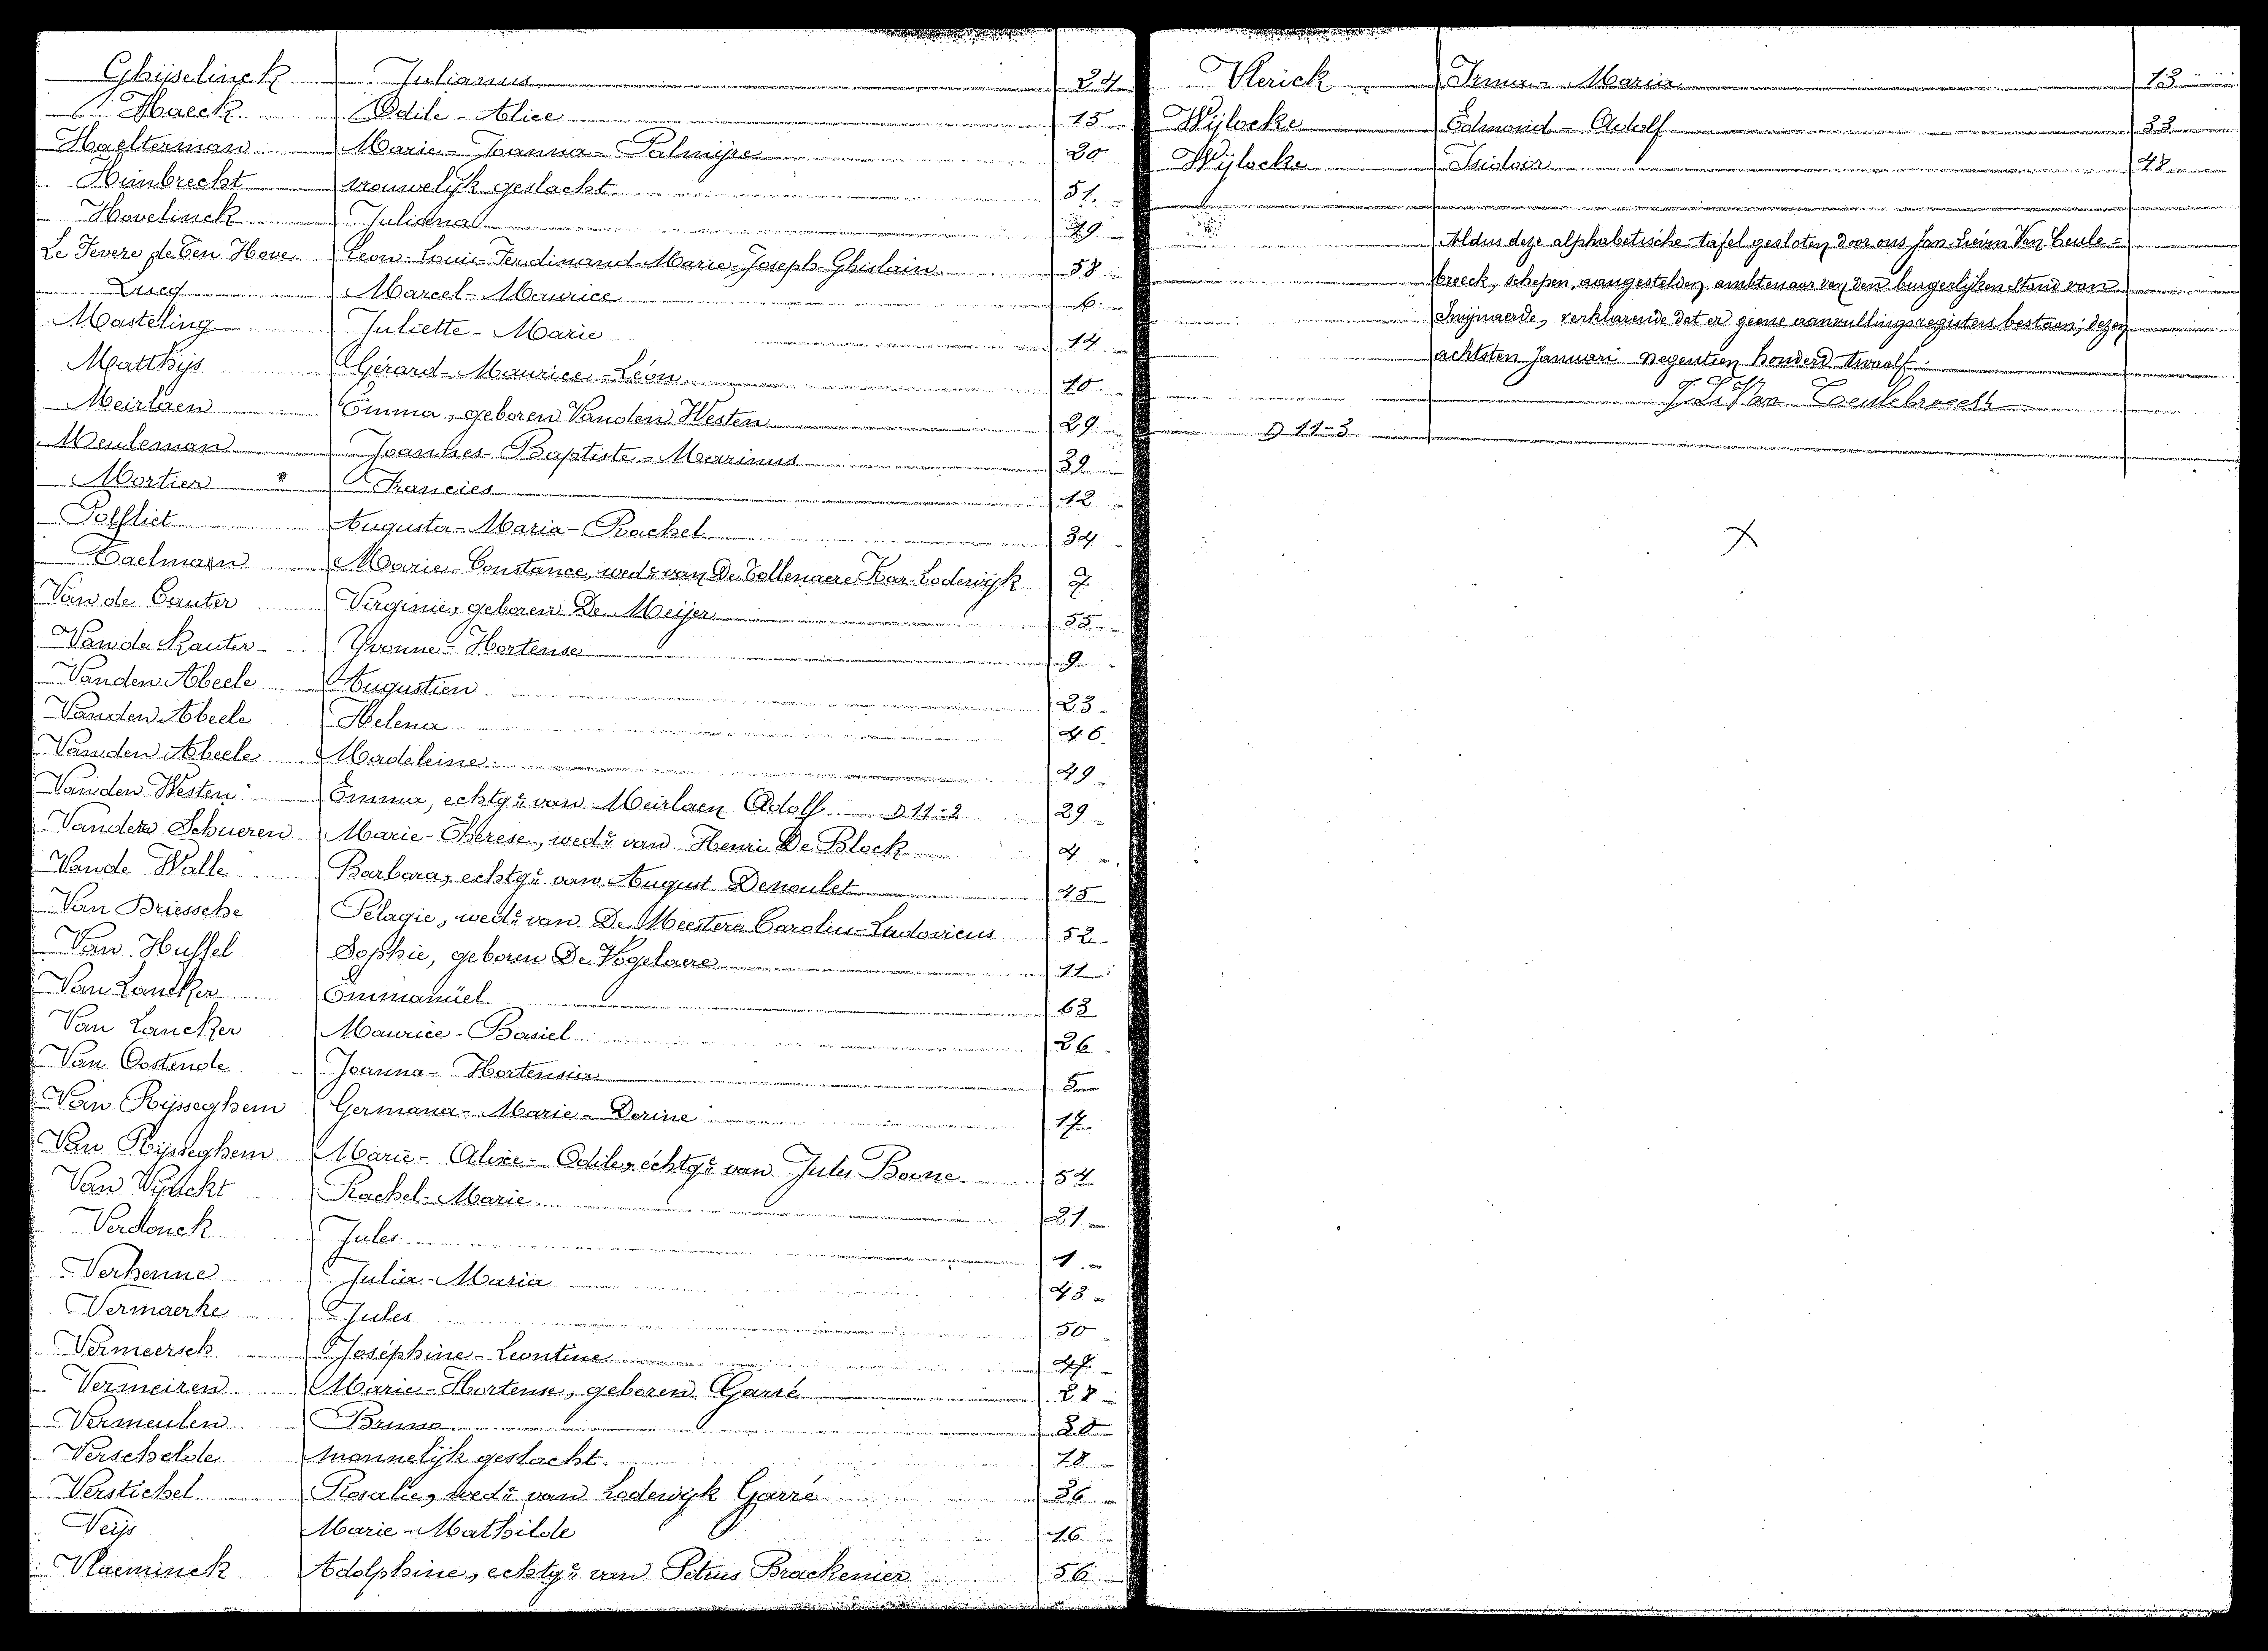 Ghijselinck Julianus 24
Haeck Odile - Alice 15
Haelterman Marie - Joanna - Palmijre 20
Heimbrecht vrouwelijk geslacht 51.
Hovelinck Juliana 19
Le Fevere de Ten Hove Leon - Louis - Ferdinand - Marie - Joseph - Ghislain 58
Marcel - Maurice 6.
Masteling Juliette - Marie 14
Matthijs Gérard - Maurice - Léon 10
Meirlaen Emma, geboren Vanden Westen 29
Meuleman Joannes - Baptiste - Marinus 39
Mortier Francies 12
Polfliet Augusta - Maria - Rachel 34
Taelman Marie - Constance, wede van De Tollenaere Kar. Lodewijk 7
Van de Cauter Virginie, geboren De Meijer 55
Van de Kauter Yvonne - Hortense 9
Vanden Abeele Augustien 23
Vanden Abeele Helena 46.
Vanden Abeele Madeleine 49
Vanden Westen Emma, echtge van Meirlaen Adolf D. 11-2 29
Vander Schueren Marie - Therese, wede van Henri De Block 4
Vande Walle Barbara, echtge van August Denoulet 45
Van Driessche Pélagie, wede van De Meestere Carolus - Ludovicus 52
Van Huffel Sophie, geboren De Vogelaere 11
Van Lancker Emmanüel 63
Van Lancker Maurice - Basiel 26
Van Oostende Joanna - Hortensia 5
Van Rijsseghem Germana - Marie - Dorine 17
Van Rijsseghem Marie - Alice - Odile, echtge van Jules Boone 54
Van Vijnckt Rachel - Marie 21
Verdonck Jules 1
Verhenne Julia - Maria 43
Vermaerke Jules 50
Vermeersch Joséphine - Leontine 47
Vermeiren Marie - Hortense, geboren Garré 28
Vermeulen Bruno 30
Verschelde mannelijk geslacht. 18
Verstichel Rosalie, wede van Lodewijk Garré 36
Veijs Marie - Mathilde 16
Vlaeminck Adolphine, echtge van Petrus Brackenier 56
Vlerick Irma - Maria 13
Wijlocke Edmond - Adolf 33
Wijlocke Isidoor 48
Aldus deze alphabetische tafel gesloten door ons Jan-Lieven Van Ceule=
broeck, schepen, aangestelden ambtenaar van den burgerlijken Stand van
Swijnaerde, verklarende dat er geene aanvullingsregisters bestaan; dezen
achtsten Januari negentien honderd twaalf.
J. L. Van Ceulebroeck
D 11-3